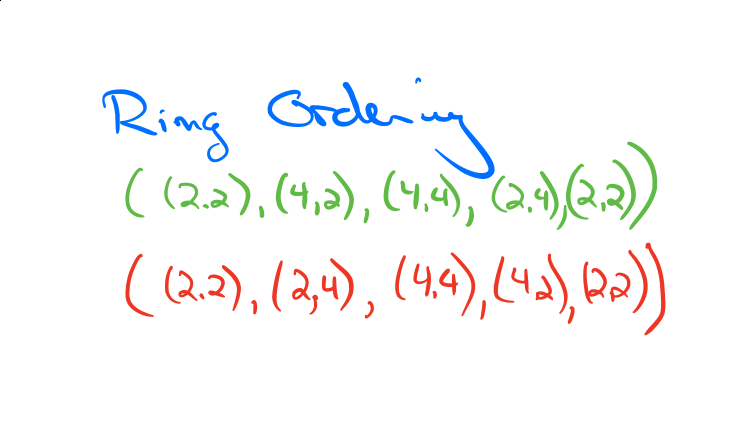 Ring Ordering
( (2.2), (4,2), (4,4), (2,4), (2,2))
( (2.2), (2,4), (4.4), (4 2), (2 2))